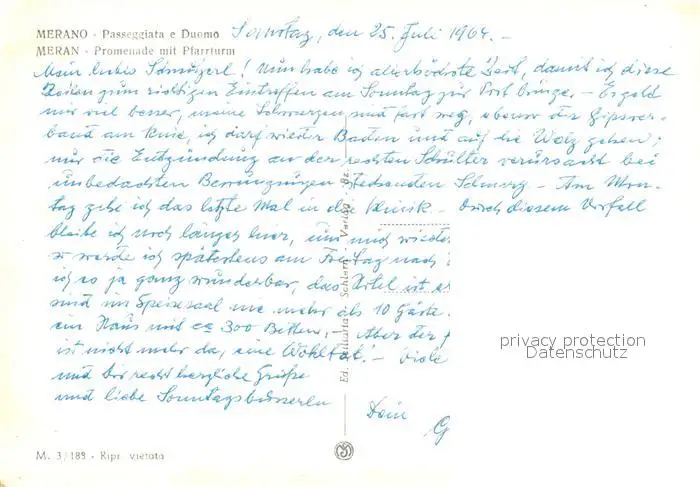 MERANO - Passeggiata e Duomo
Sonntag, den 25. Juli 1964. -
MERAN - Promenade mit Pfarrturm
Mein liebes Schnuzerl! Nun habe ich allerhöchste Zeit, damit ich diese
Zeilen zum richtigen Eintreffen am Sonntag zur Post bringe. - Es geht
mir viel besser, meine Schmerzen sind fast weg, ebenso der Gipsver-
band am Knie, ich darf wieder Baden und auf die Waag gehen;
nur die Entzündung an der rechten Schulter verursacht bei
unbedachten Bewegungen stechenden Schmerz - Am Mon-
tag gehe ich das letzte Mal in die Klinik. - Durch diesen Vorfall
bleibe ich noch länger hier, um mich wieder
werde ich spätestens am Freitag nach
ich es ja ganz wunderbar, das Hotel ist
sind im Speisesaal nie mehr als 10 Gäste.
ein Haus mit ca 300 Betten. - Aber der
ist nicht mehr da, eine Wohltat! - Viele
und Dir recht herzliche Grüße
und liebe Sonntagsbusserln
Dein
G
Ed. Schlern - Verlag - Bz.
privacy protection
Datenschutz
M. 3/188 - Ripr. vietata